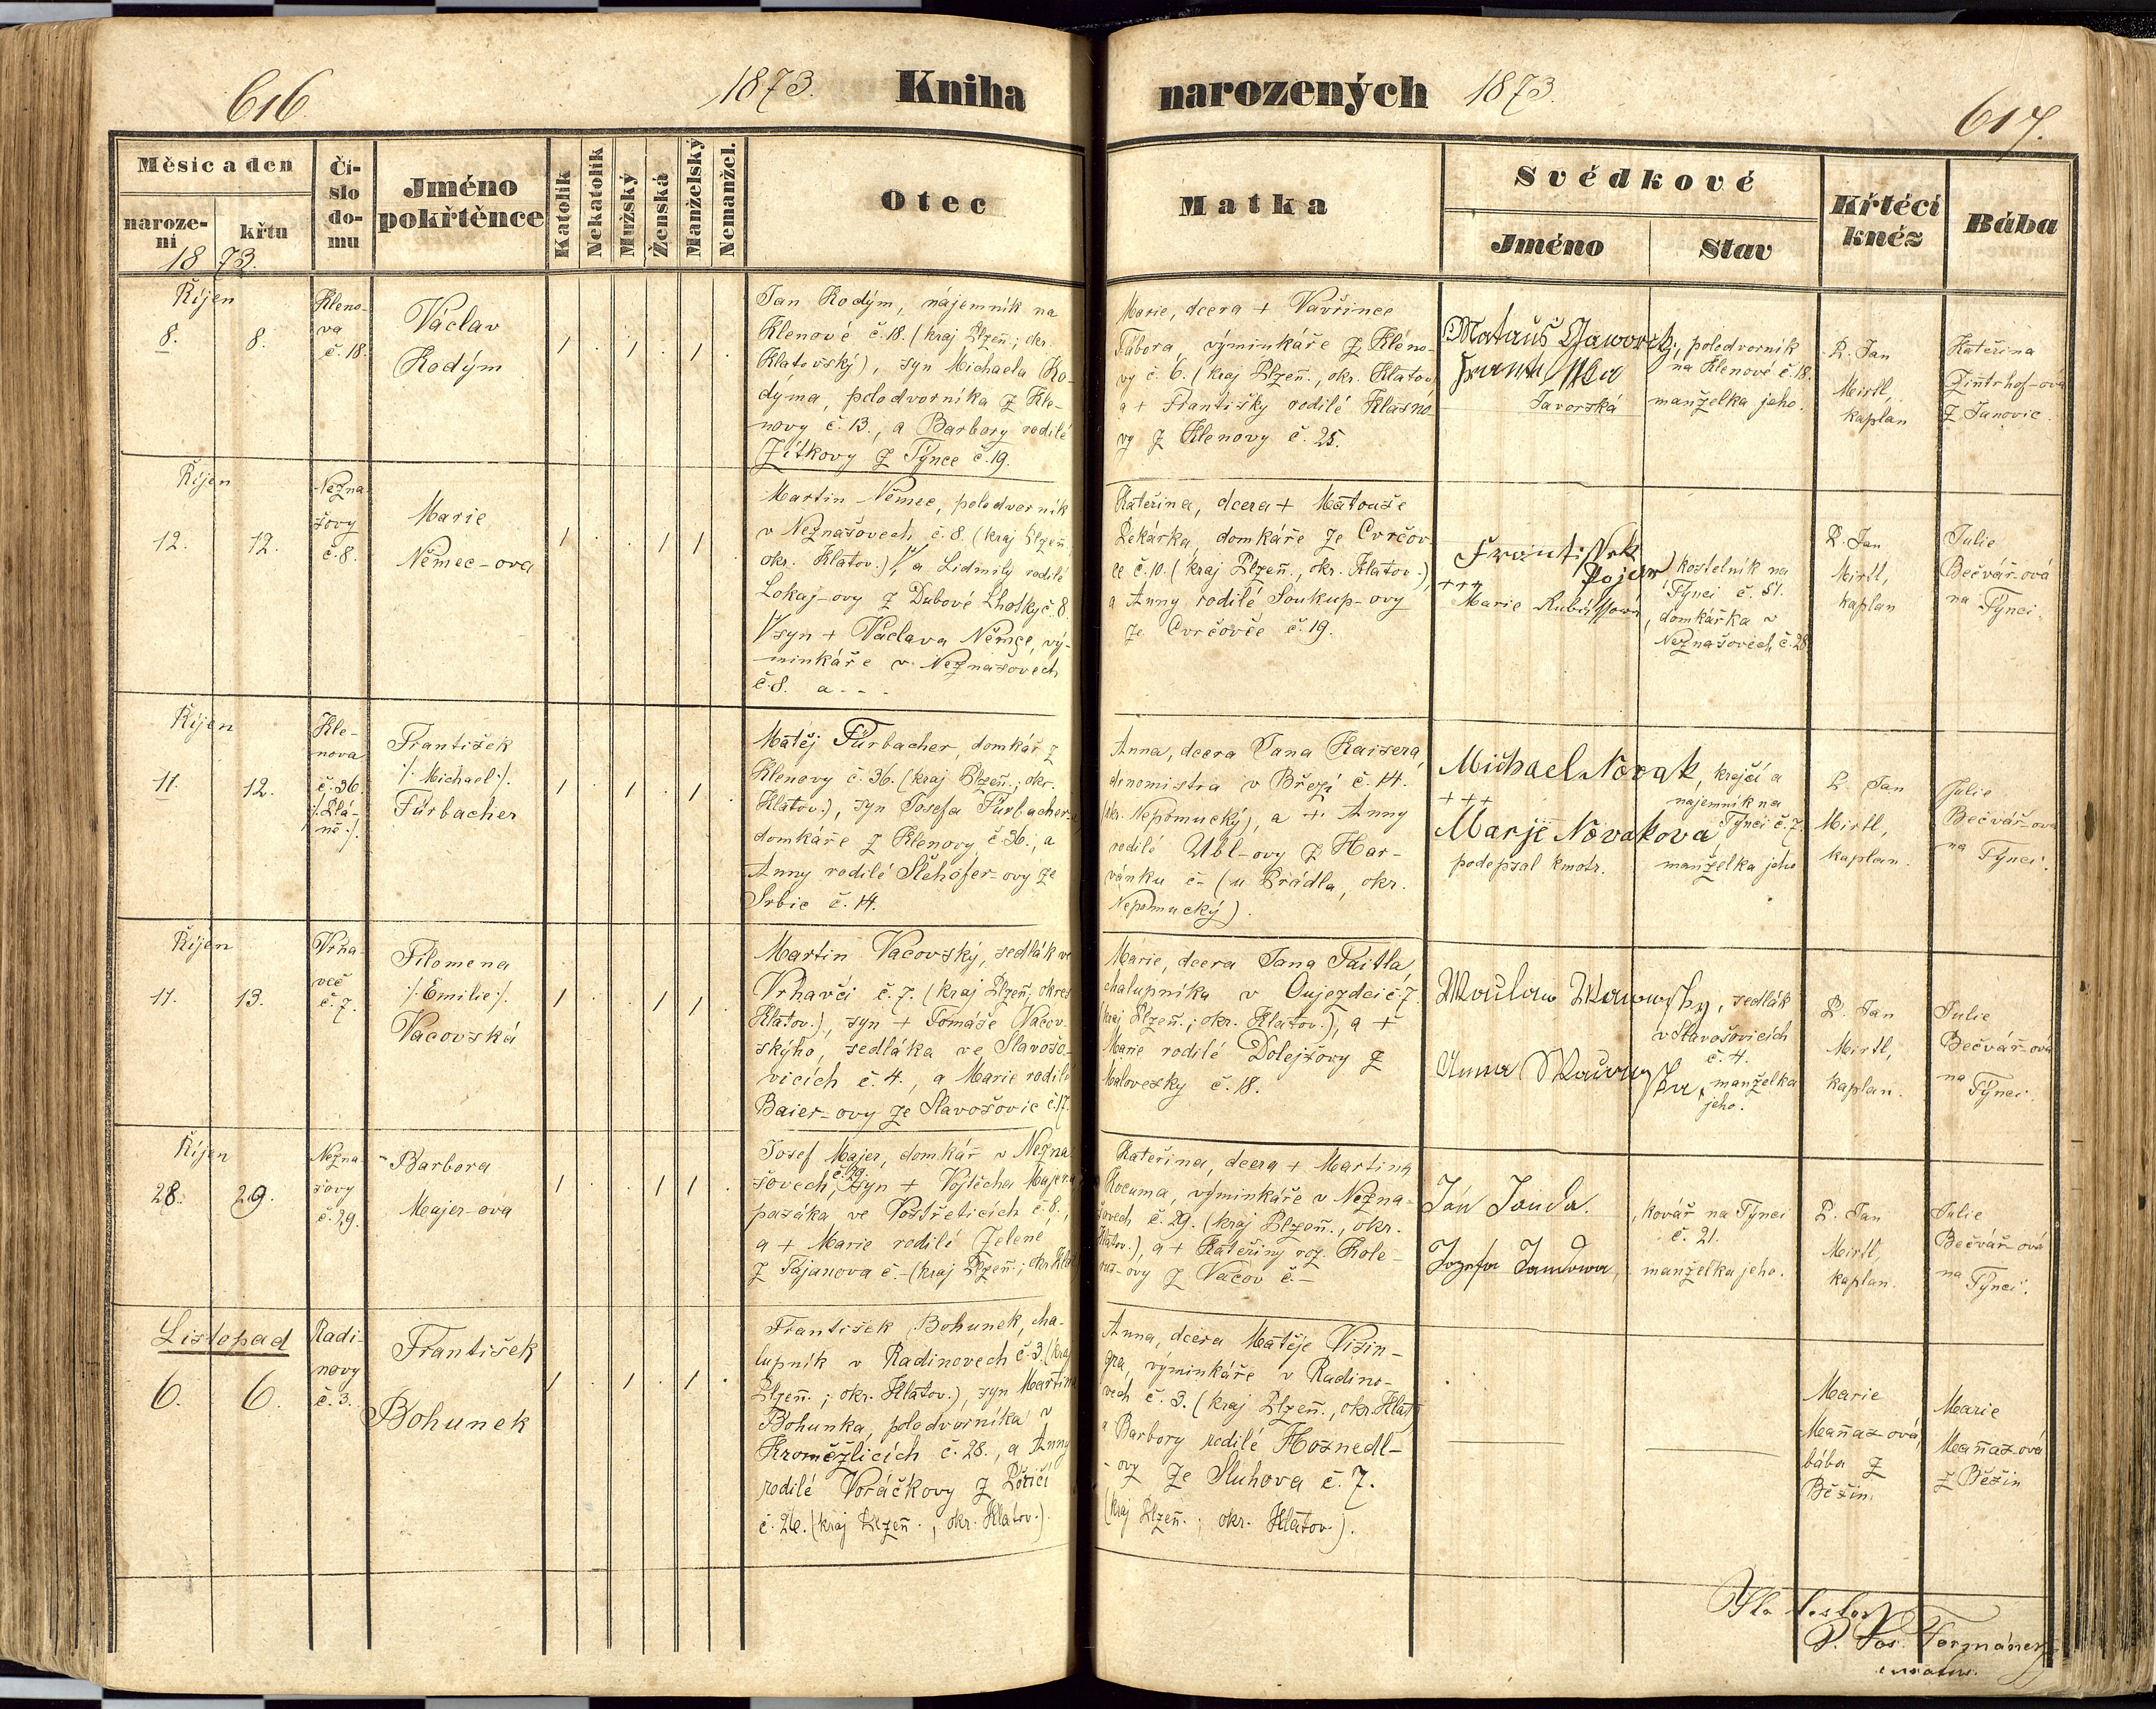 616.
1873. Kniha
narozených 1873.
617.
Měsíc a den
naroze-
ní
křtu
18 73.
Čí-
slo
do-
mu
Jméno
pokřtěnce
Katolík
Nekatolík
Mužský
Ženská
Manželský
Nemanžel.
Otec
Matka
Svědkové
Jméno
Stav
Křtící
kněz
Bába
Říjen
8.
8.
Kleno-
va
č. 18.
Václav
Kodým
1 . 1 . 1 .
Jan Kodým, nájemník na
Klenové č. 18. (kraj Plzeň.; okr.
Klatovský), syn Michaela Ko-
dýma, polodvorníka z Kle-
novy č. 13., a Barbory rodilé
Zítkovy z Týnce č. 19.
Marie, dcera + Vavřince
Tábora, výminkáře z Kléno-
vy č. 6. (kraj Plzeň., okr. Klatov.
a + Františky rodilé Klasno-
vy z Klenovy č. 25.
Matauš Jaworsky
Javorská
, polodvorník
na Klenové č. 18.
manželka jeho.
P. Jan
Mirtl,
kaplan
Kateřina
Zintrhof-ová
z Janovic.
Říjen
12.
12.
Nezna-
šovy
č. 8.
Marie
Němec-ova
1 . . 1 1 .
Martin Němec, polodvorník
v Neznašovech č. 8. (kraj Plzeň.
okr. Klatov.), a Lidmily rodilé
Lokaj-ovy z Dubové Lhotky č. 8.
syn + Václava Němce, vý-
minkáře v Neznašovech
č. 8. a - -
Kateřina, dcera + Matouše
Pekárka, domkáře ze Cvrčov-
ce č. 10. (kraj Plzeň., okr. Klatov.),
a Anny rodilé Soukup-ovy
ze Cvrčovce č. 19.
Frantissek
Pojer
+++
Marie
) kostelník na
Týnci č. 51.
, domkářka v
Neznašovech č. 28.
P. Jan
Mirtl,
kaplan
Julie
Bečvář-ová
na Týnci.
Říjen
11.
12.
Kle-
nova
č. 36.
/: Plá-
ně :/
František
/: Michael :/
Fürbacher
1 . 1 . 1 .
Matěj Fürbacher, domkář z
Klenovy č. 36. (kraj Plzeň.; okr.
Klatov.), syn Josefa Fürbacher-a,
domkáře z Klenovy č. 36., a
Anny rodilé Šlehofer-ovy ze
Srbic č. 14.
Anna, dcera Jana Kaisera,
drnomistra v Březí č. 14.
(okr. Nepomucký), a + Anny
rodilé Ubl-ovy z Har-
vánku č- (u Prádla, okr.
Nepomucký).
Michael Novak
+++
Marje Novakova
podepsal kmotr.
, krajčí a
nájemník na
Týnci č. 7.
manželka jeho
P. Jan
Mirtl,
kaplan.
Julie
Bečvář-ová
na Týnci.
Říjen
11.
13.
Vrha-
več
č. 7.
Filomena
/: Emilie :/
Vacovská
1 . . 1 1 .
Martin Vacovský, sedlák ve
Vrhavči č. 7. (kraj Plzeň; okres
Klatov.), syn + Tomáše Vacov-
skýho, sedláka ve Slavošo-
vicích č. 4., a Marie rodilé
Baier-ovy ze Slavošovic č. 17.
Marie, dcera Jana Taitla,
chalupníka v Oujezdci č. 7.
(kraj Plzeň.; okr. Klatov.), a +
Marie rodilé Dolejšovy z
Malovesky č. 18.
Anna
, sedlák
v Slavošovicích
č. 4.
, manželka
jeho.
P. Jan
Mirtl,
kaplan.
Julie
Bečvář-ová
na Týnci.
Říjen
28.
29.
Nezna-
šovy
č. 29.
Barbora
Majer-ová
1 . . 1 1 .
Josef Majer, domkář v Nezna-
šovech, č. 29. syn + Vojtěcha Majera
pasáka ve Vostřeticích č. 8.,
a + Marie rodilé Zelené
z Pajanova č.- (kraj Plzeň.; okr. Klat.
Kateřina, dcera + Martina
Kocuma, výminkáře v Nezna-
šovech č. 29. (kraj Plzeň., okr.
Klatov.), a + Kateřiny roz. Kole-
-ovy z Vacov č.-
Jan Janda.
Jozefa Jandowa,
, kovář na Týnci
č. 21.
manželka jeho.
P. Jan
Mirtl,
kaplan.
Julie
Bečvář-ová
na Týnci.
Listopad
6.
6.
Radi-
novy
č. 3.
František
Bohunek
1 . 1 . 1 .
František Bohunek, cha-
lupník v Radinovech č. 3. (kraj
Plzeň.; okr. Klatov.), syn Martina
Bohunka, polodvorníka v
Kroměžlicích č. 28., a Anny
rodilé Voráčkovy z Poříčí
č. 26. (kraj Plzeň., okr. Klatov.).
Anna, dcera Matěje Visin-
gra, výminkáře v Radino-
vech č. 3. (kraj Plzeň., okr. Klat.)
a Barbory rodilé Hosnedl-
-ovy ze Sluhova č. 7.
(kraj Plzeň.; okr. Klatov.).
Marie
Maňas-ová,
bába z
Běšin.
Marie
Maňas-ová
z Běšin
P. Jos. Formánek